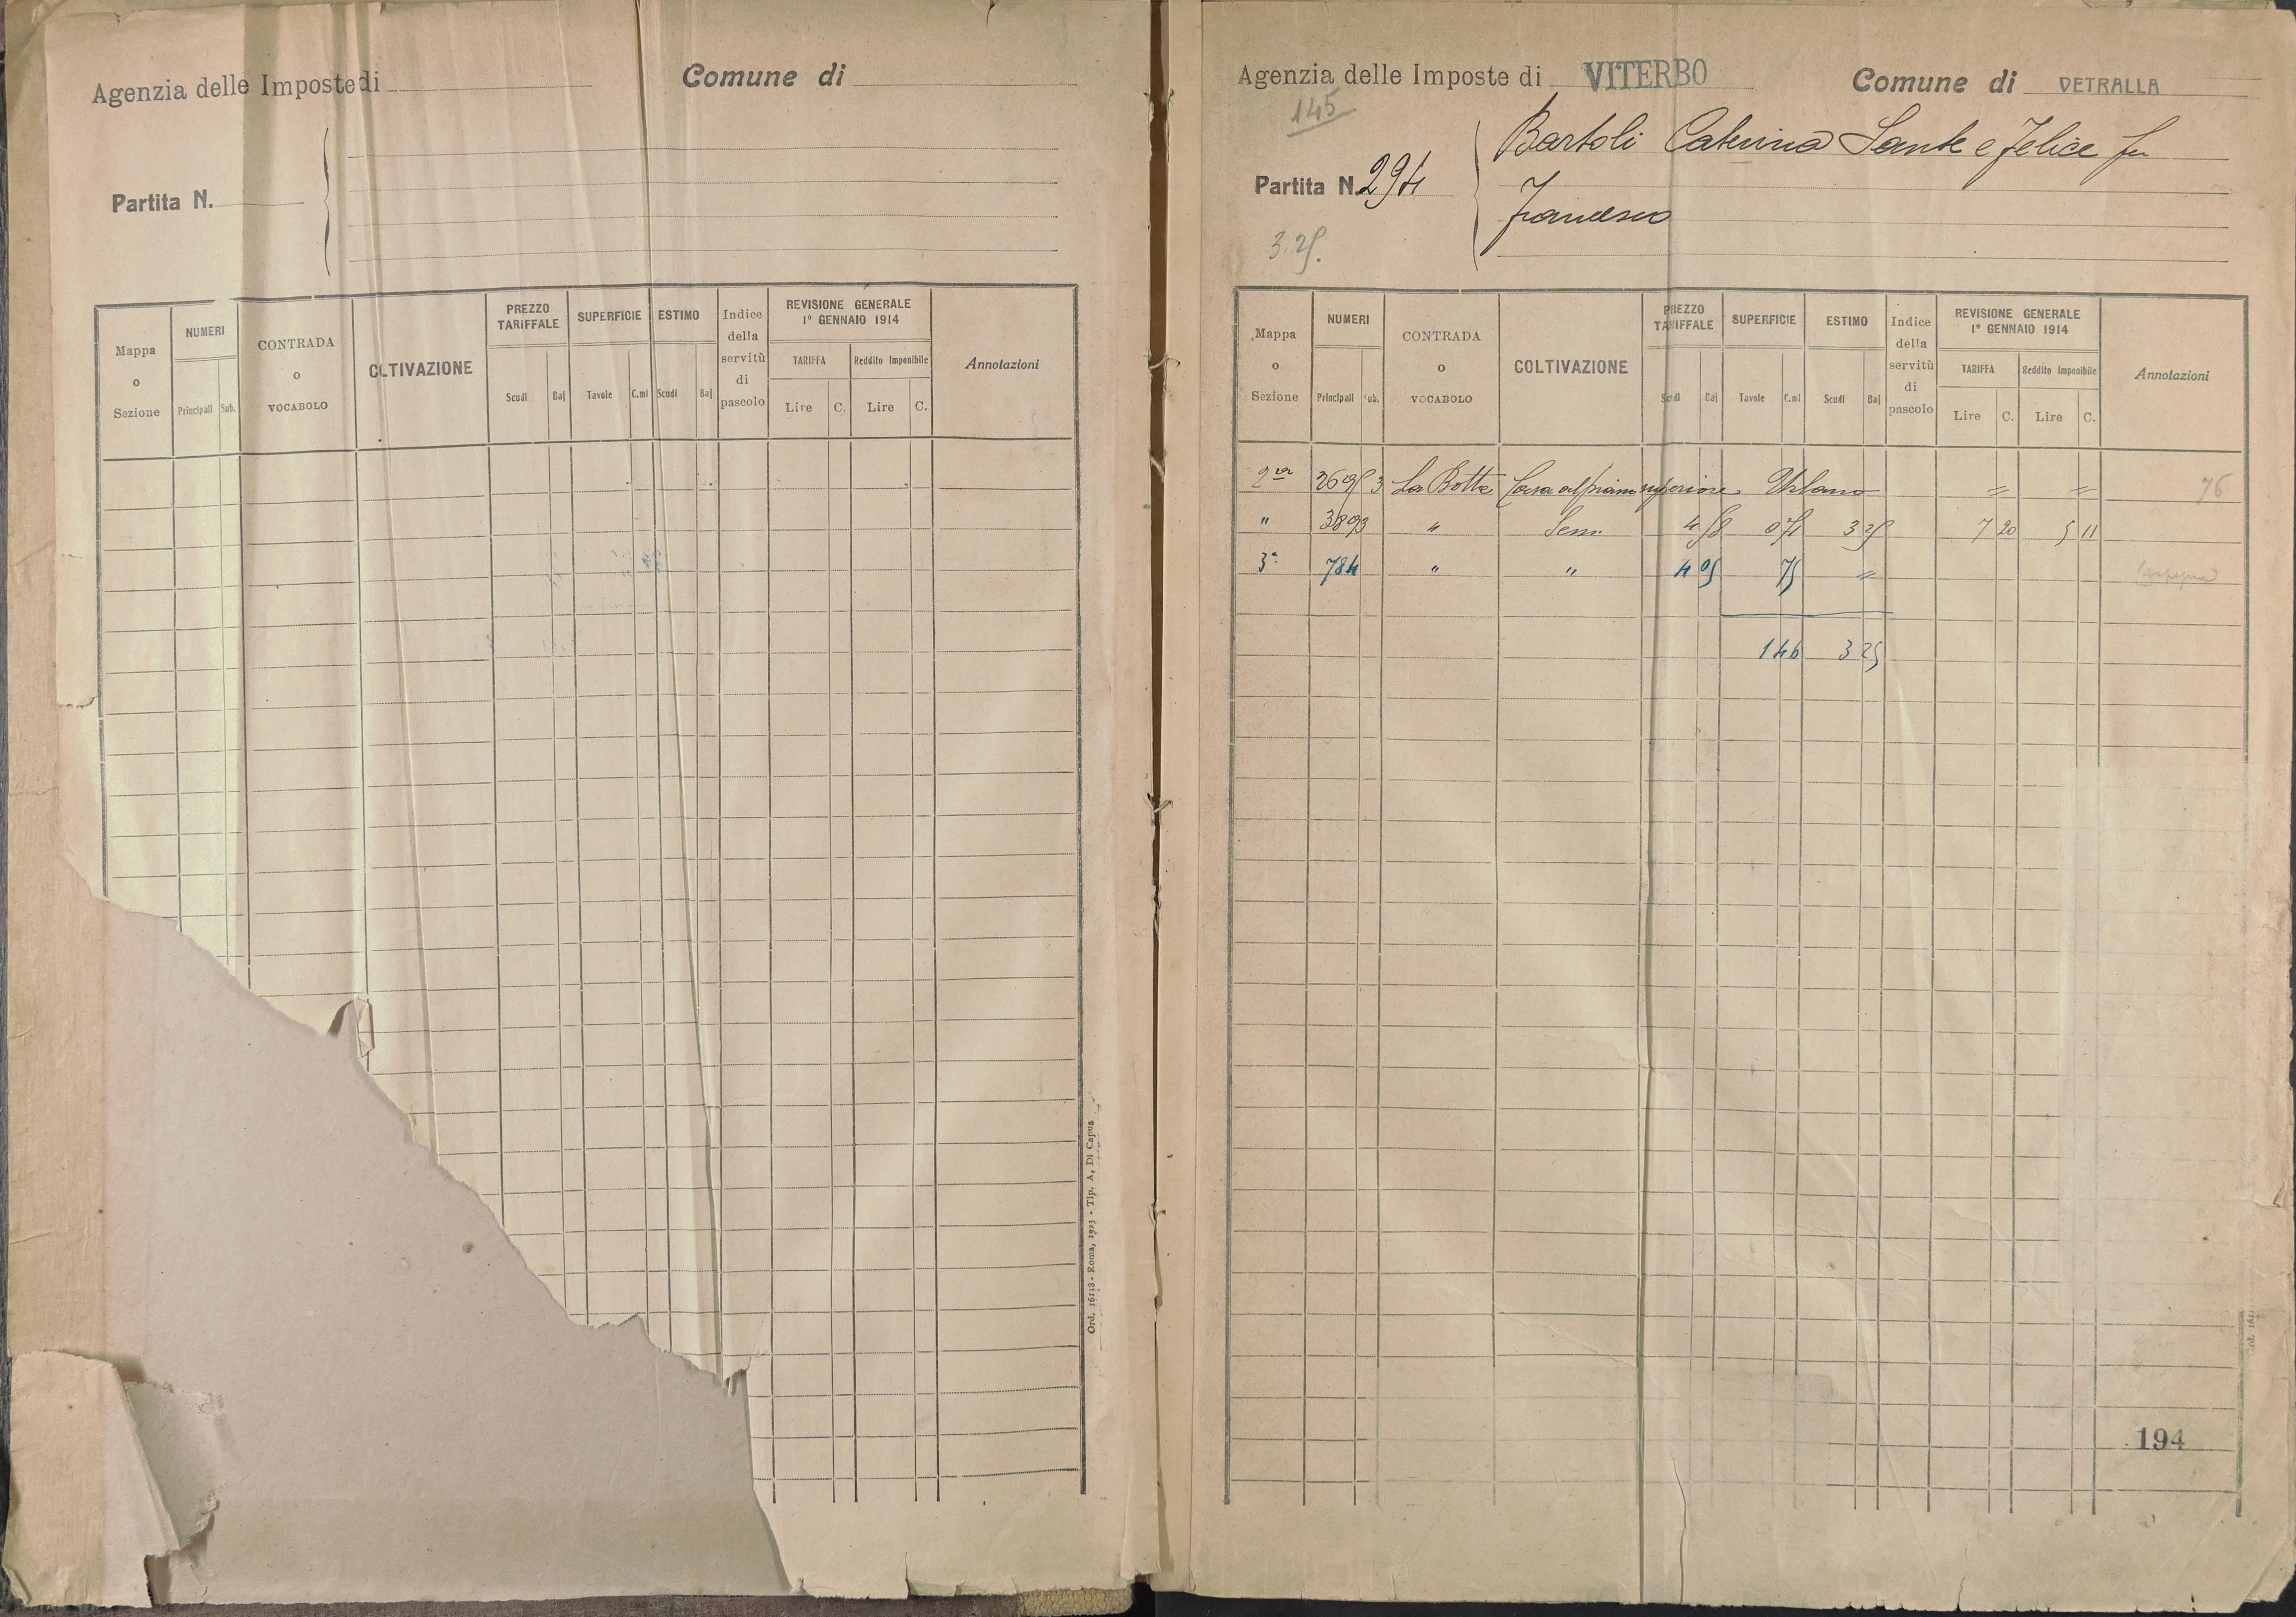 Agenzia delle Imposte di
Comune di
Partita N.
Mappa o Sezione
NUMERI
Principali Sub.
CONTRADA o VOCABOLO
CLTIVAZIONE
PREZZO TARIFFALE
Scudi Baj
SUPERFICIE
Tavole C.mi
ESTIMO
Scudi Baj
Indice della servitù di pascolo
REVISIONE GENERALE
1° GENNAIO 1914
TARIFFA
Lire C.
Reddito Imponibile
Lire C.
Annotazioni
Ord. 16138 - Roma, 1923 - Tip. A. Di Capua
Agenzia delle Imposte di VITERBO
Comune di VETRALLA
145
Bartoli Caterina Sante e Felice fu
Partita N. 294
Francesco
3.25.
Mappa o Sezione
NUMERI
Principali Sub.
CONTRADA o VOCABOLO
COLTIVAZIONE
PREZZO TARIFFALE
Scudi Baj
SUPERFICIE
Tavole C.mi
ESTIMO
Scudi Baj
Indice della servitù di pascolo
REVISIONE GENERALE
1° GENNAIO 1914
TARIFFA
Lire C.
Reddito Imponibile
Lire C.
Annotazioni
2ª 2695 3 La Botte Casa al piano superiore Urbano = = 76
" 3893 " Sem. 4 58 0 71 3 25 7 20 5 11
3ª 784 " " 4 05 75 =
1 46 3 25
194